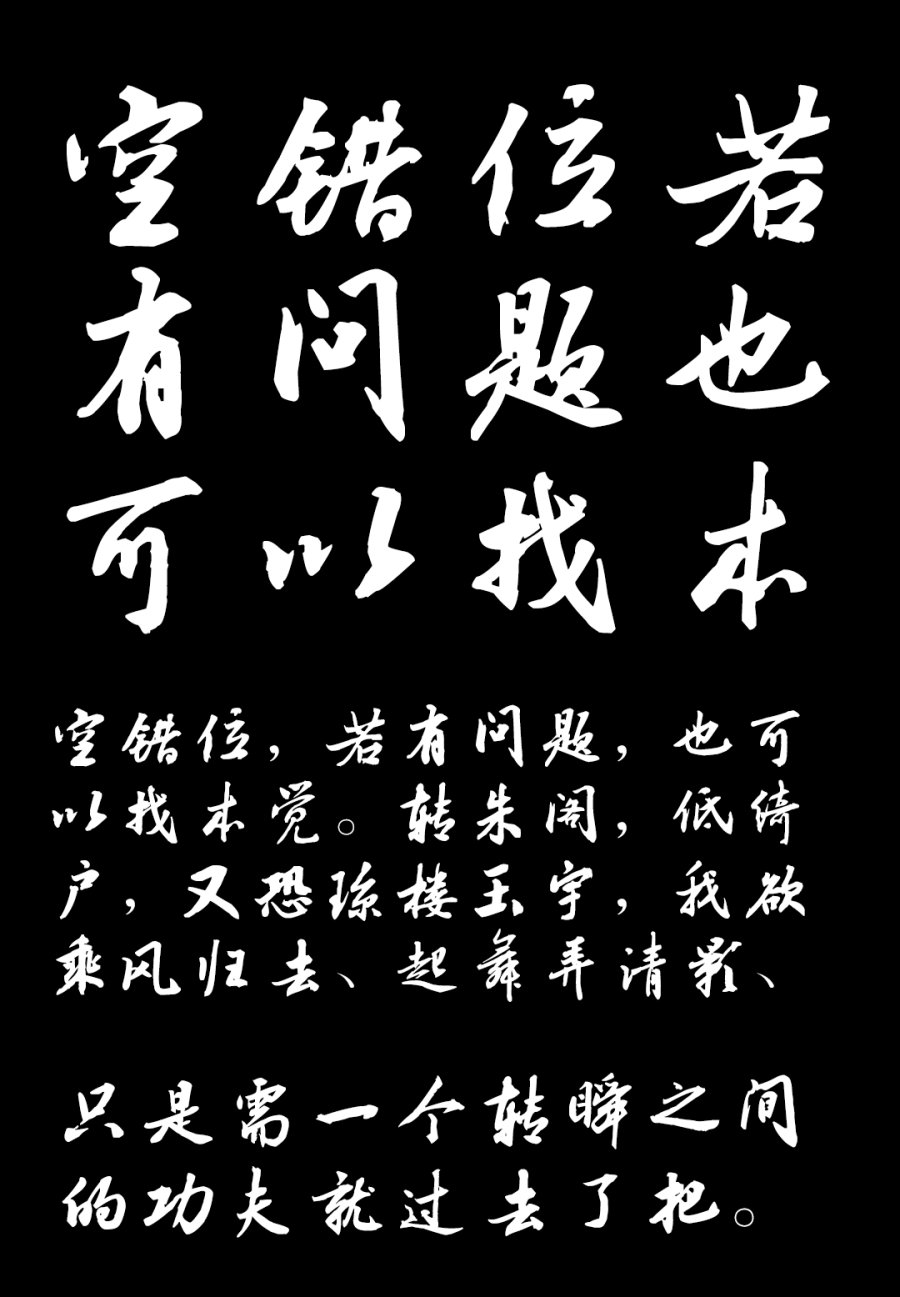 空错位若
有问题也
可以找本
空错位，若有问题，也可
以找本觉。转朱阁，低绮
户，又恐琼楼玉宇，我欲
乘风归去、起舞弄清影、
只是需一个转瞬之间
的功夫就过去了把。